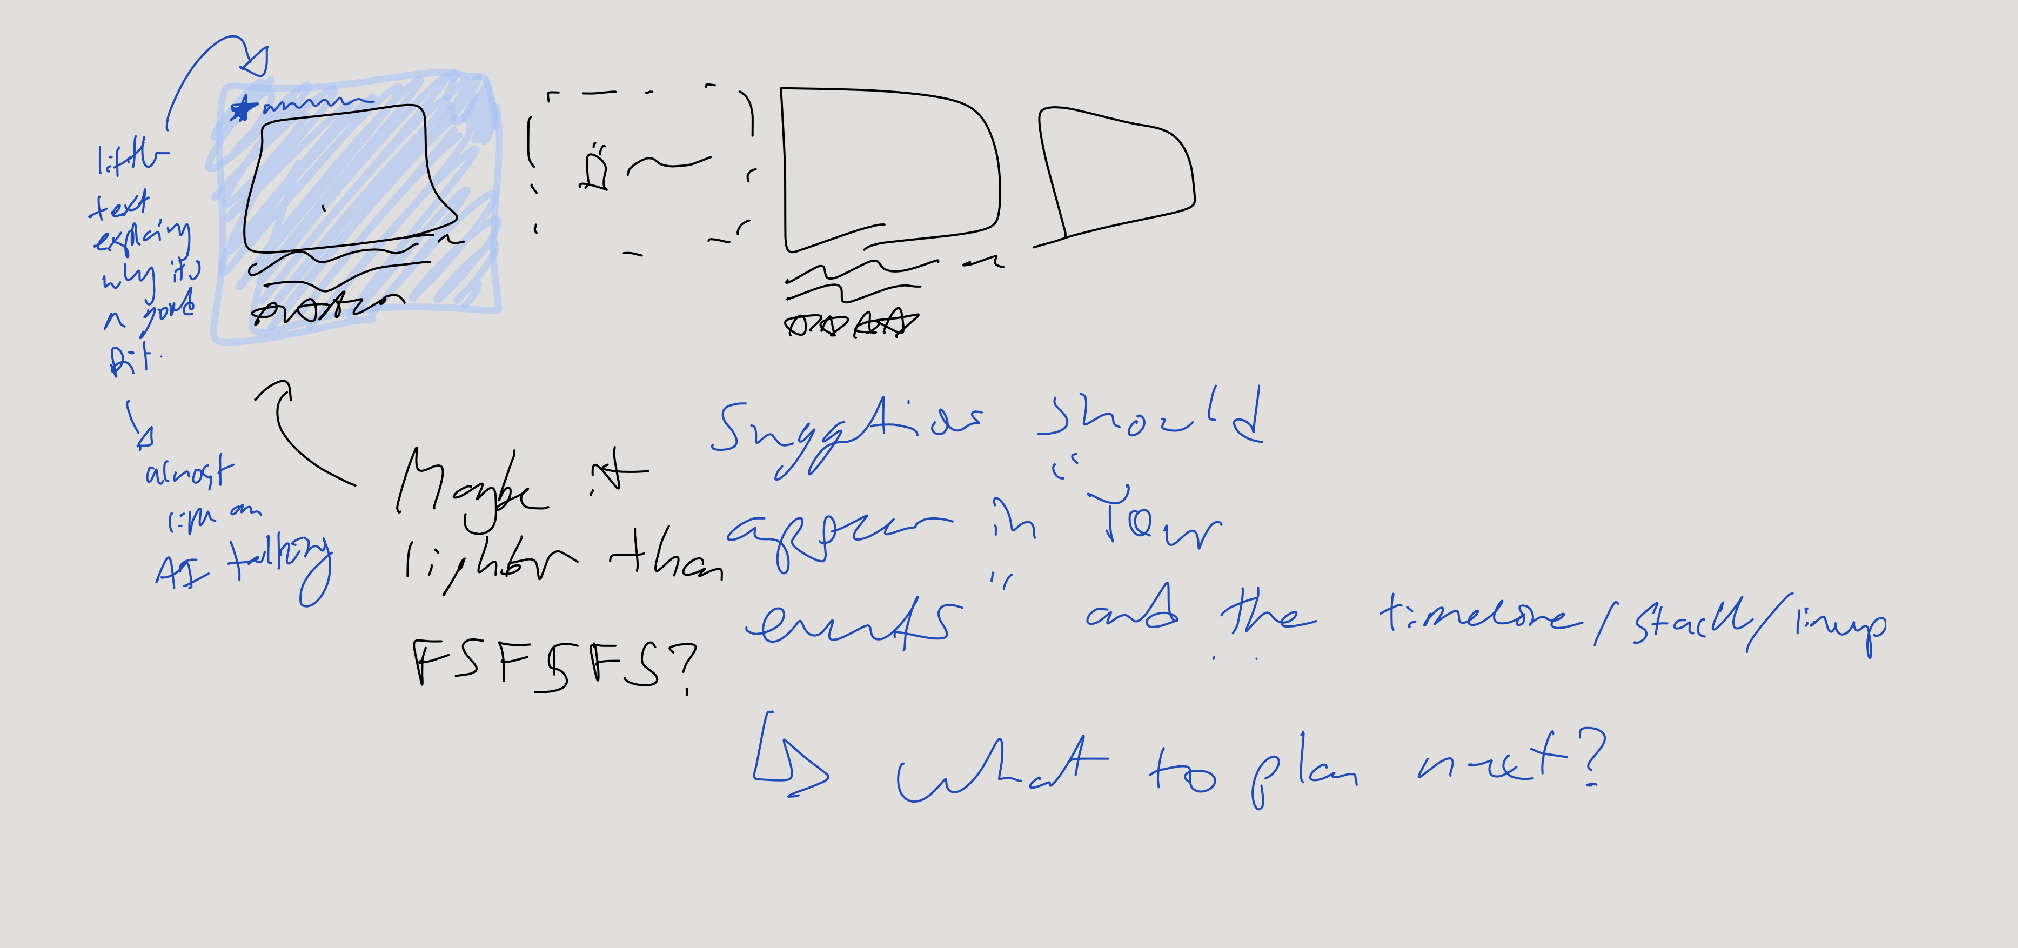 little
text
explaing
why it's
a good
fit.
almost
like an
AI talking
Maybe it
lighter than
FSFSFS?
Suggetios should
appear in "Your
events" and the timeline/stack/lineup
What to plan next?